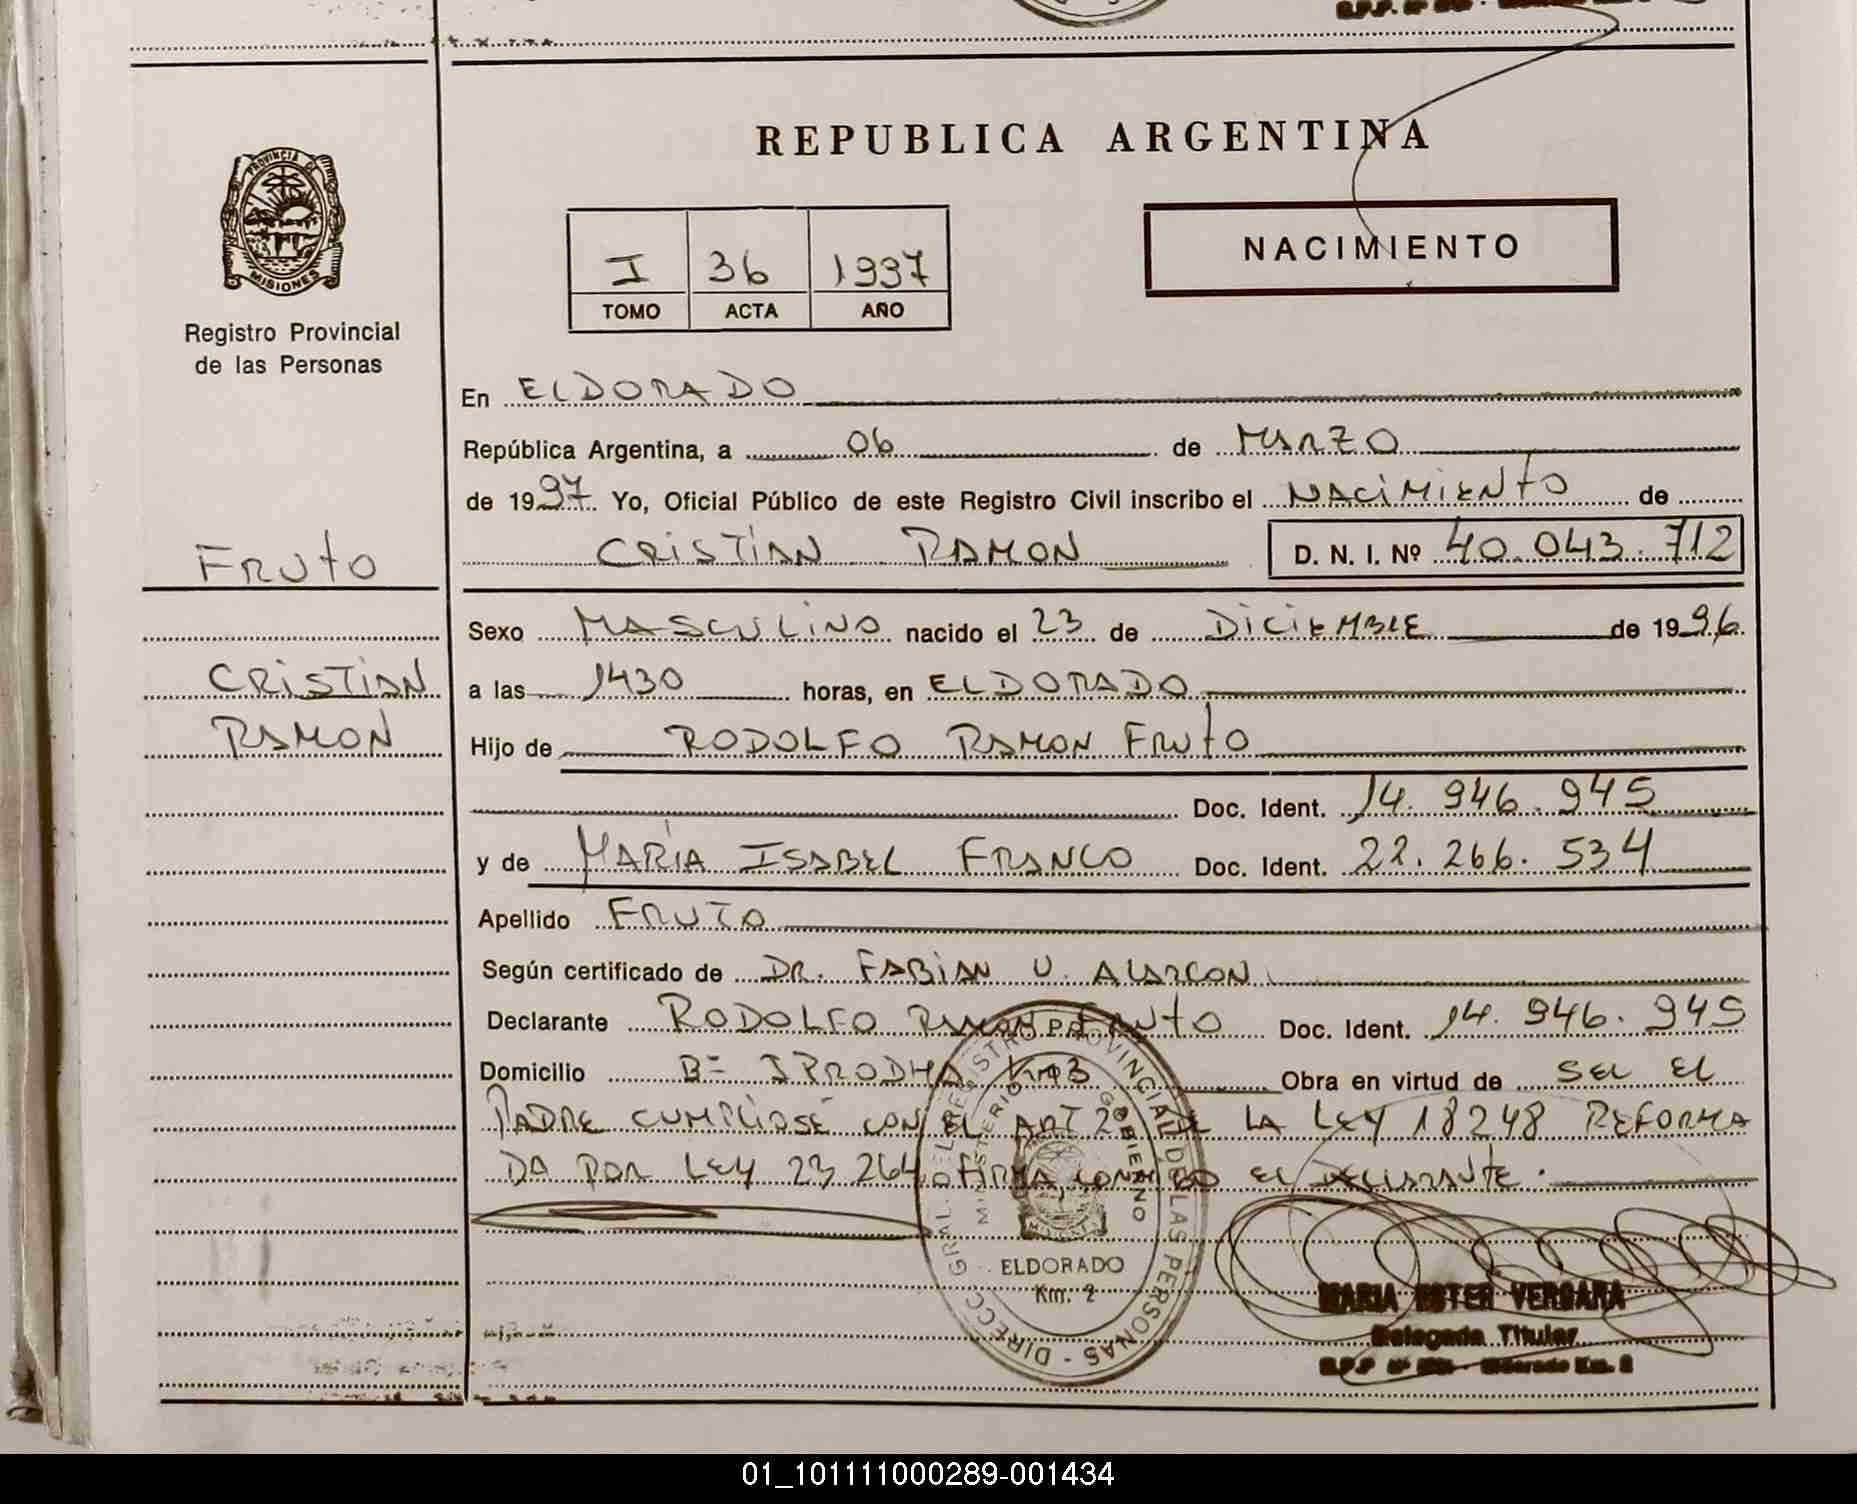 REPUBLICA ARGENTINA
PROVINCIA DE
MISIONES
Registro Provincial
de las Personas
I 36 1997
TOMO ACTA AÑO
NACIMIENTO
En ELDORADO
República Argentina, a 06 de MARZO
de 1997. Yo, Oficial Público de este Registro Civil inscribo el NACIMIENTO de
CRISTIAN RAMON D. N. I. Nº 40.043.712
FRUTO
CRISTIAN
RAMON
Sexo MASCULINO nacido el 23 de DICIEMBRE de 1996.
a las 1430 horas, en ELDORADO
Hijo de RODOLFO RAMON FRUTO
Doc. Ident. 14.946.945
y de MARÍA ISABEL FRANCO Doc. Ident. 22.266.534
Apellido FRUTO
Según certificado de DR. FABIAN U. ALARCON
Declarante RODOLFO RAMON FRUTO Doc. Ident. 14.946.945
Domicilio B= IPRODHA Km3 Obra en virtud de SER EL
PADRE CUMPLIOSE CON EL ART 2 DE LA LEY 18248 REFORMA
DA POR LEY 23 264 FIRMA, CONMIGO EL DECLARANTE.
DIRECC. GRAL. DEL REGISTRO PROVINCIAL DE LAS PERSONAS
MINISTERIO DE GOBIERNO
ELDORADO
Km. 2
MARIA ESTER VERGARA
Delegada Titular
Eldorado Km. 2
01_101111000289-001434